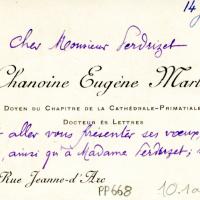 14
Cher Monsieur Perdrizet
Chanoine Eugène Mart
Doyen du Chapitre de la Cathédrale-Primatiale
Docteur ès Lettres
aller vous présenter ses vœux
, ainsi qu'à Madame Perdrizet ;
Rue Jeanne-d'Arc
PP668
10.1a